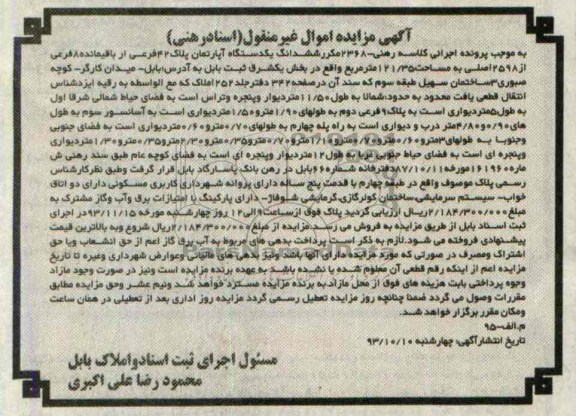 آگهی مزایده اموال غیرمنقول(اسنادرهنی)
به موجب پرونده اجرائی کلاسه رهنی-۲۳۶۸مکررششدانگ یکدستگاه آپارتمان پلاک۴۲فرعی از باقیمانده۸فرعی
از۲۵۹۸اصلی به مساحت۱۲۱/۳۵مترمربع واقع در بخش یکشرق ثبت بابل به آدرس:بابل- میدان کارگر- کوچه
صبوری۳ساختمان سهیل طبقه سوم که سند آن درصفحه۳۴۲ دفترجلد۲۵۲املاک که مع الواسطه به رقیه ایزدشناس
انتقال قطعی یافت محدود به حدود:شمالا به طول۱۱/۵۰متردیوار وپنجره وتراس است به فضای حیاط شمالی شرقا اول
به طول۵متردیواری است به پلاک۹فرعی دوم به طولهای۱/۹۰مترو۱/۵۰متردیواری است به آسانسور سوم به طول
های۰/۹۰و۴/۸۰متر درب و دیواری است به راه پله چهارم به طولهای۰/۷۰مترو۰/۶۰متردیواری است به فضای جنوبی
وجنوبا به طولهای۳مترو
وپنجره ای است به فضای حیاط جنوبی غربا به طول۱۲متردیوار وپنجره ای است به فضای کوچه عام طبق سند رهنی ش
ماره۱۶۱۹۶۰مورخه۸۷/۱۰/۱۱دفترخانه شماره۶۶بابل در رهن بانک پاسارگاد بابل قرار گرفت وطبق نظرکارشناس
رسمی پلاک موصوف واقع در طبقه چهارم با قدمت پنج ساله دارای پروانه شهرداری کاربری مسکونی دارای دو اتاق
خواب- سیستم سرمایشی،ساختمان کولرگازی،گرمایشی شوفاژ- دارای پارکینگ با امتیازات برق وآب وگاز مشترک به
مبلغ۲/۱۸۴/۳۰۰/۰۰۰ریال ارزیابی گردید پلاک فوق ازساعت۹الی۱۲ روز چهارشنبه مورخه ۹۳/۱۱/۱۵در اجرای
ثبت اسناد بابل از طریق مزایده به فروش می رسد.مزایده از مبلغ۲/۱۸۴/۳۰۰/۰۰۰ریال شروع وبه بالاترین قیمت
پیشنهادی فروخته می شود.لازم به ذکر است پرداخت بدهی های مربوط به آب برق گاز اعم از حق انشعاب ویا حق
اشتراک ومصرف در صورتی که مورد مزایده دارای آنها باشد ونیز بدهی های مالیاتی وعوارض شهرداری وغیره تا تاریخ
مزایده اعم از اینکه رقم قطعی آن معلوم شده یا نشده باشد به عهده برنده مزایده است ونیز در صورت وجود مازاد
وجوه پرداختی بابت هزینه های فوق از محل مازاد به برنده مزایده مسترد خواهد شد ونیم عشر وحق مزایده مطابق
مقررات وصول می گردد ضمنا چنانچه روز مزایده تعطیل رسمی گردد مزایده روز اداری بعد از تعطیلی در همان ساعت
ومکان مقرر برگزار خواهد شد.
م.الف-۹۵
تاریخ انتشارآگهی: چهارشنبه ۹۳/۱۰/۱۰
مسئول اجرای ثبت اسنادواملاک بابل
محمود رضا علی اکبری